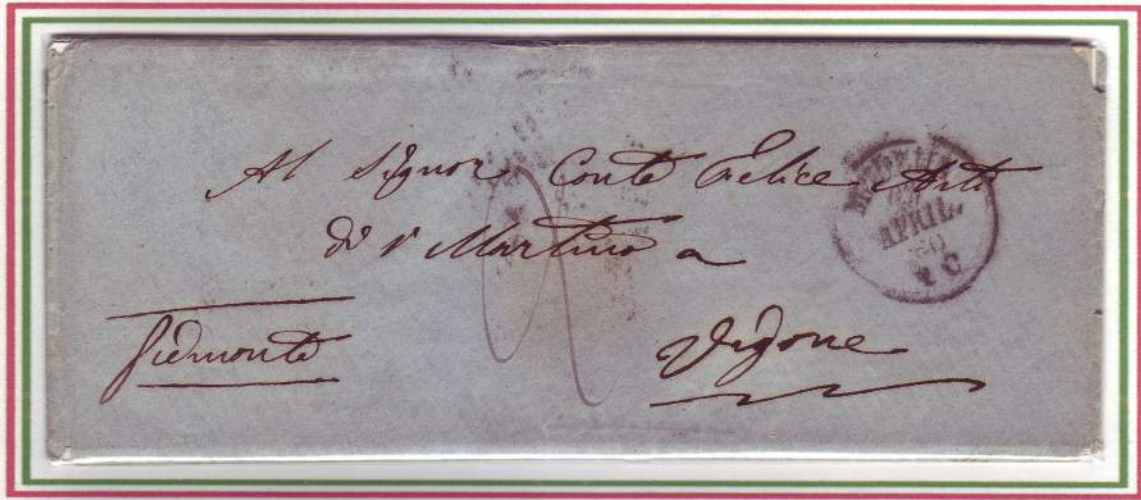 Al Signor Conte Felice
di S Martino a
Piemonte
Vigone
APRIL.